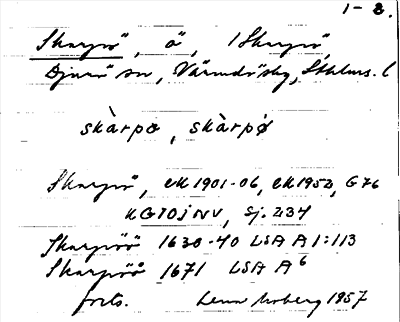 1-2.
Skarpö, ö, i Skarpö,
Djurö sn, Värmdö skg, Sthlms. l
skàrpα, skàrpø
Skarpö, EK 1901-06, EK 1952, G76
KG 10j NV, Sj. 234
Skarpöö 1630-40 LSA A1:113
Skarpöö 1671 LSA A6
forts. Lenn Moberg 1957